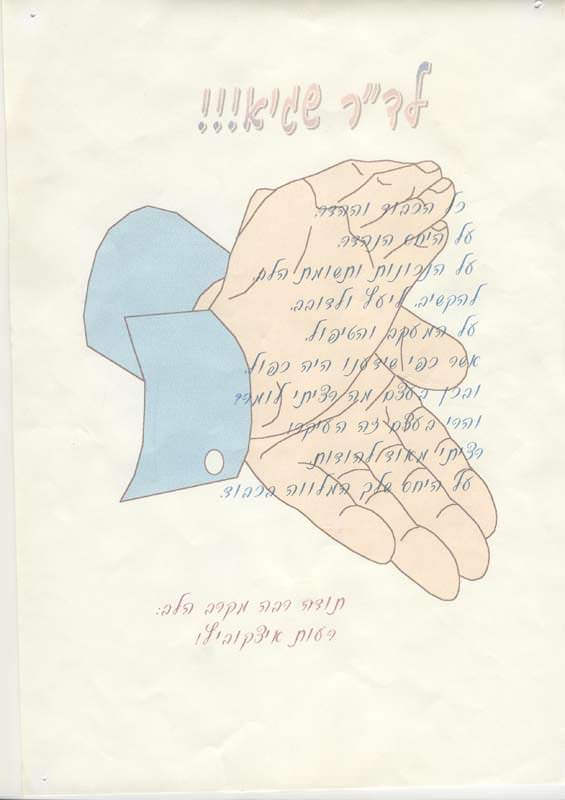 לד"ר שגיא!!!
כל הכבוד וההדר.
על היחס הנהדר.
על הנכונות ותשומת הלב,
להקשיב, ליעץ ולדובב.
על המעקב והטיפול.
אשר כפי שידענו היה כפול.
ובכן בעצם מה רציתי לומר?
והרי בעצם זה העיקר!
רציתי מאוד להודות.
על היחס שלך המלווה בכבוד.
תודה רבה מקרב הלב:
רעות איצקוביץ!